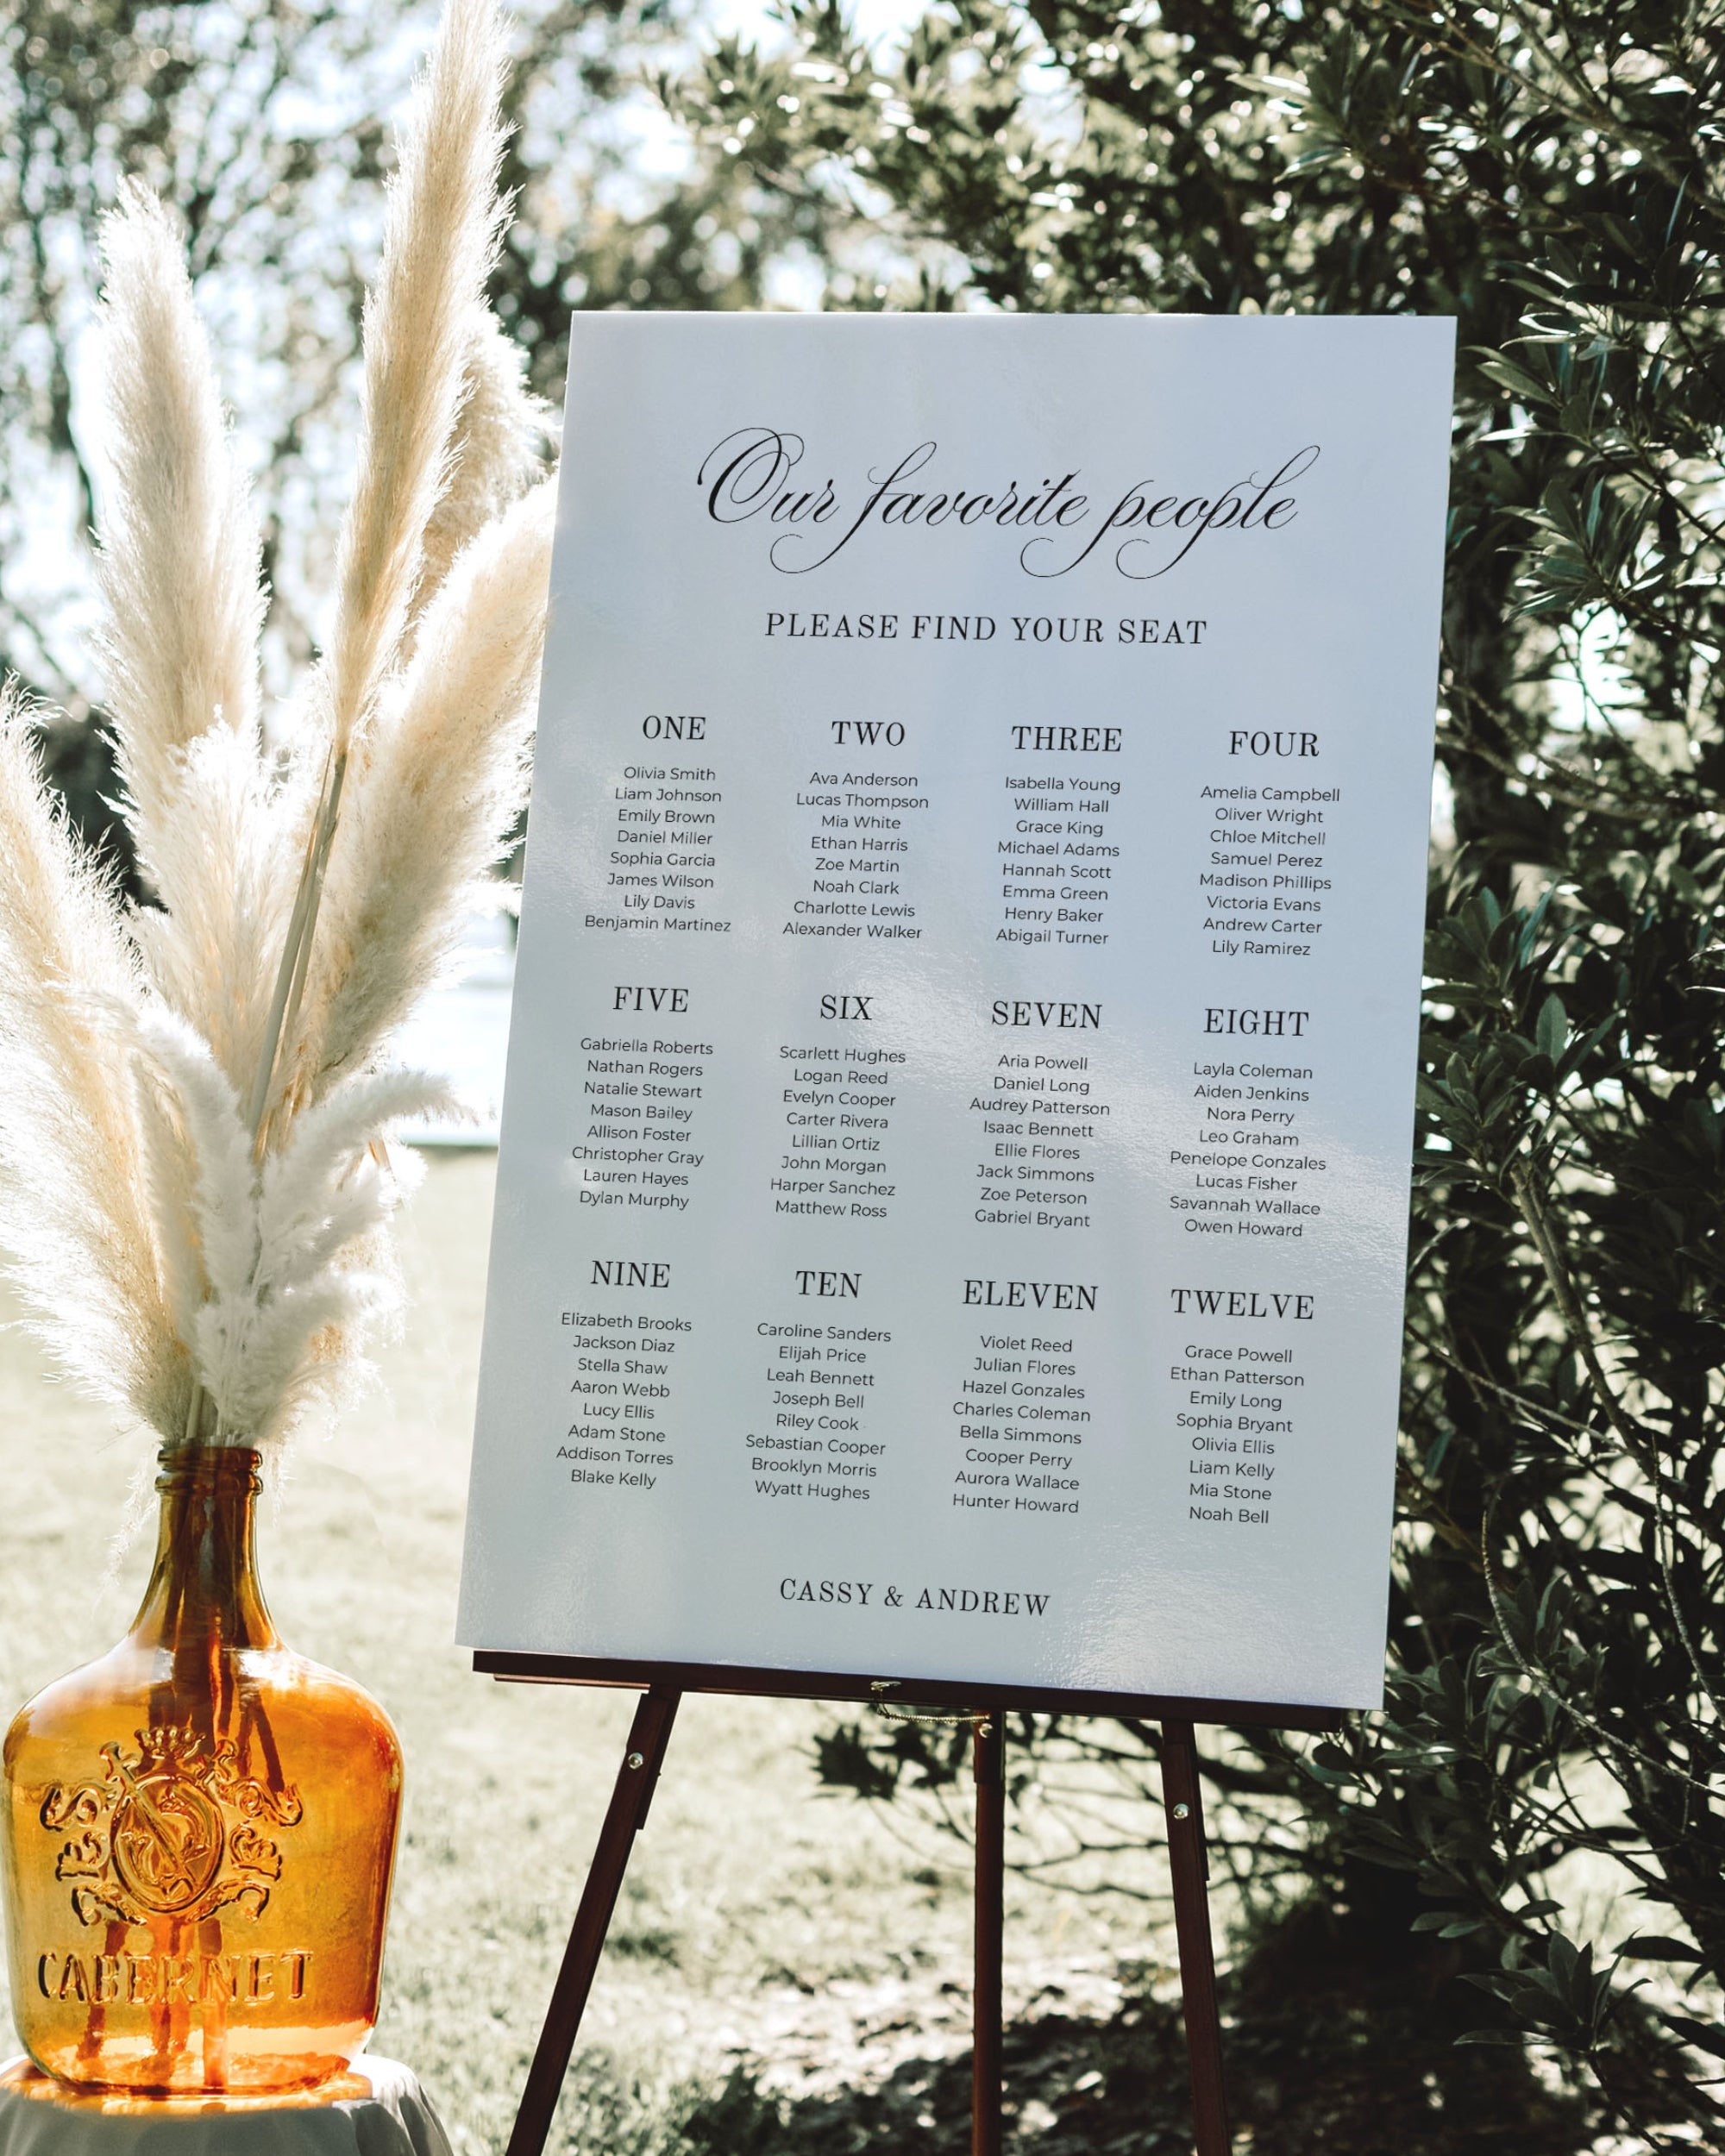 Our favorite people
PLEASE FIND YOUR SEAT
ONE
Olivia Smith
Liam Johnson
Emily Brown
Daniel Miller
Sophia Garcia
James Wilson
Lily Davis
Benjamin Martinez
TWO
Ava Anderson
Lucas Thompson
Mia White
Ethan Harris
Zoe Martin
Noah Clark
Charlotte Lewis
Alexander Walker
THREE
Isabella Young
William Hall
Grace King
Michael Adams
Hannah Scott
Emma Green
Henry Baker
Abigail Turner
FOUR
Amelia Campbell
Oliver Wright
Chloe Mitchell
Samuel Perez
Madison Phillips
Victoria Evans
Andrew Carter
Lily Ramirez
FIVE
Gabriella Roberts
Nathan Rogers
Natalie Stewart
Mason Bailey
Allison Foster
Christopher Gray
Lauren Hayes
Dylan Murphy
SIX
Scarlett Hughes
Logan Reed
Evelyn Cooper
Carter Rivera
Lillian Ortiz
John Morgan
Harper Sanchez
Matthew Ross
SEVEN
Aria Powell
Daniel Long
Audrey Patterson
Isaac Bennett
Ellie Flores
Jack Simmons
Zoe Peterson
Gabriel Bryant
EIGHT
Layla Coleman
Aiden Jenkins
Nora Perry
Leo Graham
Penelope Gonzales
Lucas Fisher
Savannah Wallace
Owen Howard
NINE
Elizabeth Brooks
Jackson Diaz
Stella Shaw
Aaron Webb
Lucy Ellis
Adam Stone
Addison Torres
Blake Kelly
TEN
Caroline Sanders
Elijah Price
Leah Bennett
Joseph Bell
Riley Cook
Sebastian Cooper
Brooklyn Morris
Wyatt Hughes
ELEVEN
Violet Reed
Julian Flores
Hazel Gonzales
Charles Coleman
Bella Simmons
Cooper Perry
Aurora Wallace
Hunter Howard
TWELVE
Grace Powell
Ethan Patterson
Emily Long
Sophia Bryant
Olivia Ellis
Liam Kelly
Mia Stone
Noah Bell
CASSY & ANDREW
CABERNET